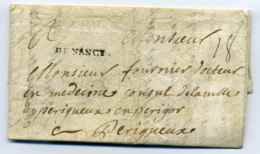 Monsieur
18
DE NANCY.
Monsieur fournier docteur
en medecine consul de la ville
de perigueux en perigor
a Perigueux